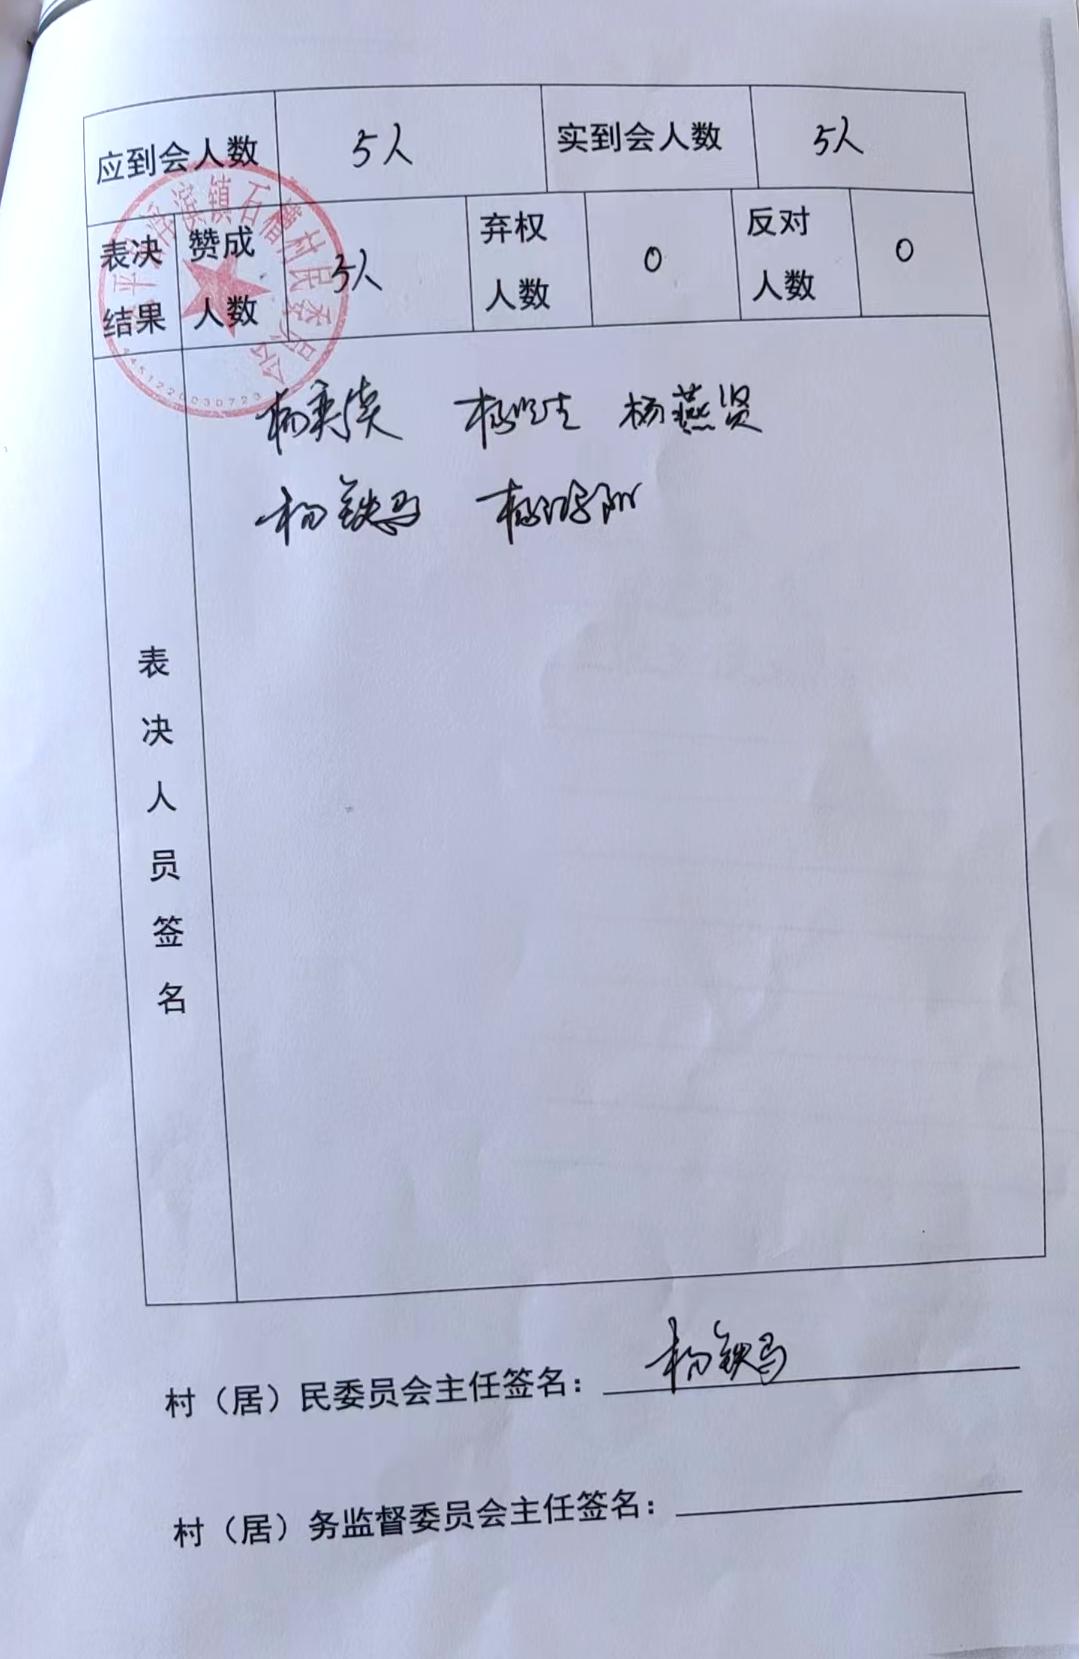 应到会人数 5人 实到会人数 5人
表决结果 赞成人数 5人 弃权人数 0 反对人数 0
滨镇石槽村民委员会
4451220030723
杨 杨 杨燕贤
杨铁马 杨
表决人员签名
村（居）民委员会主任签名： 杨铁马
村（居）务监督委员会主任签名：